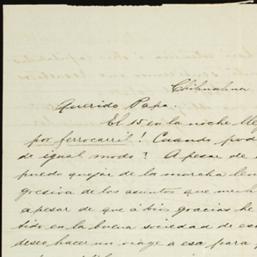 Chihuahua
Querido Papa.
El 15 en la noche lle
por ferrocarril! Cuando pod
de igual modo? A pesar de
puedo quejar de la marcha len
gresiva de los asuntos que me
a pesar de que á Dios gracias he
tido en la buena sociedad de es
deseo hacer un viage a esa para